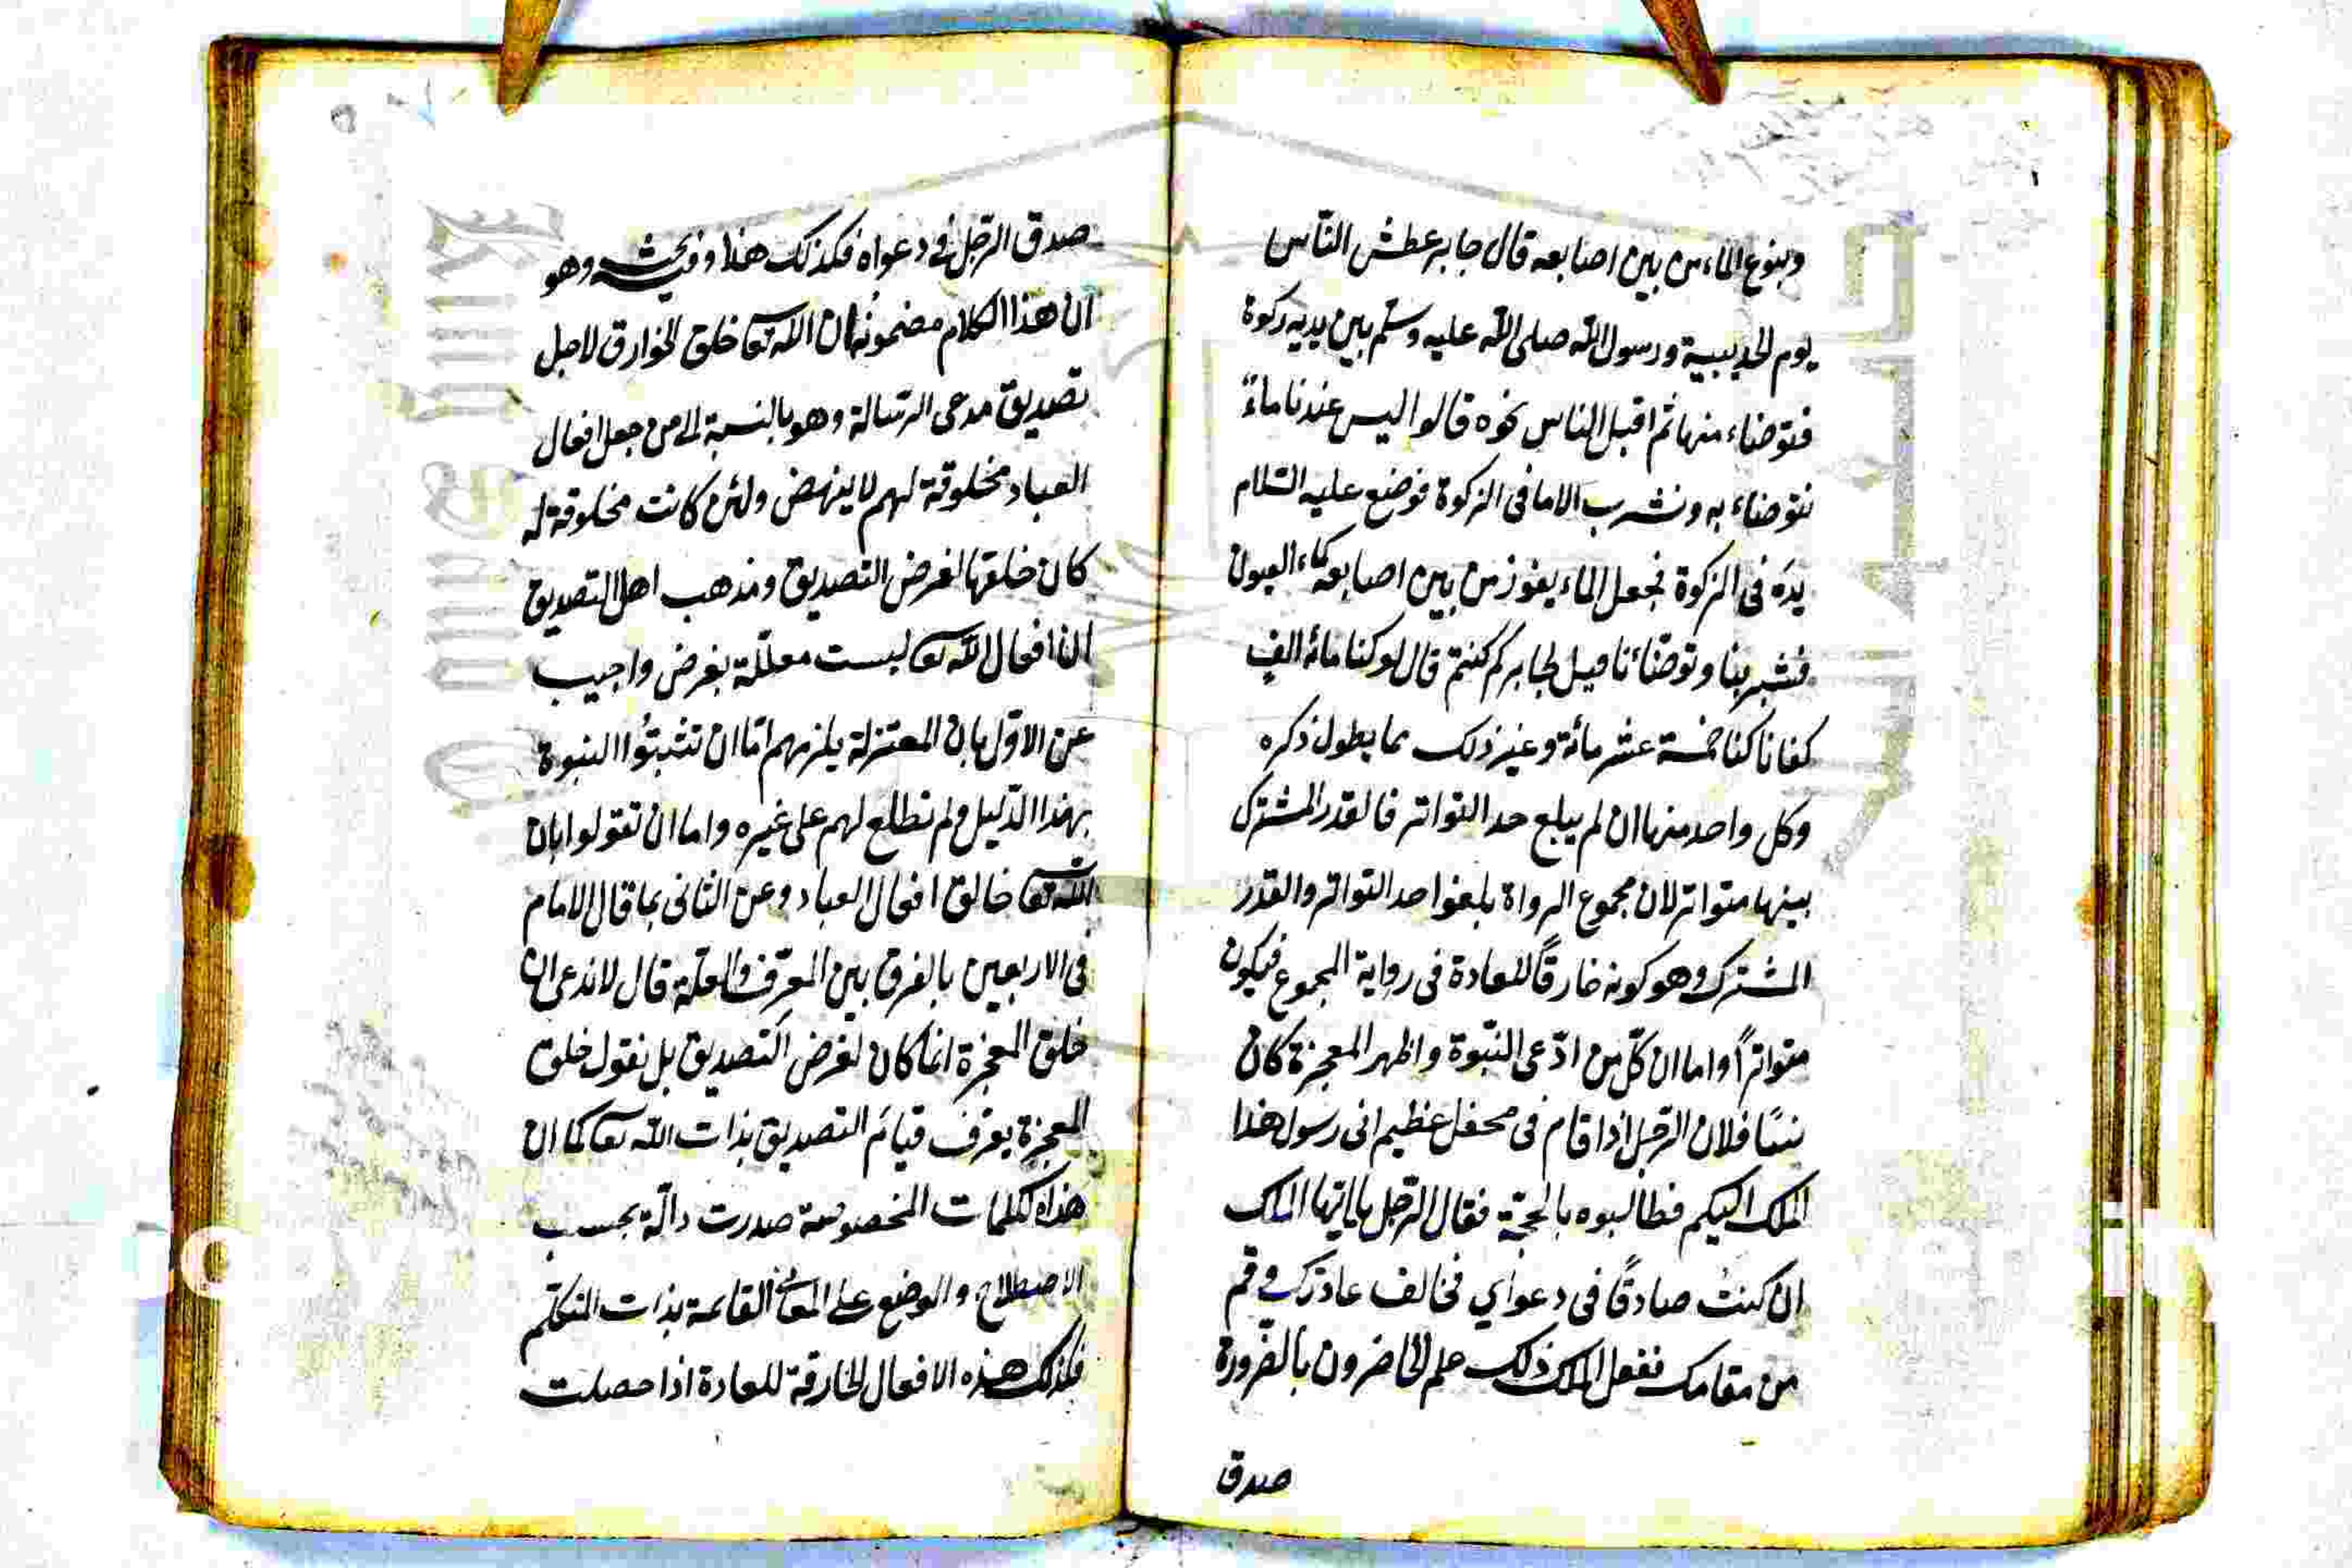 وبنوع الماء من بين اصابعه قال جابر عطش النّاس
يوم الحديبية ورسول الله صلى الله عليه وسلّم بين يديه ركوة
فتوضاء منها ثم اقبل الناس نحوه قالوا ليس عندنا ماءً
نتوضاء به ونشرب الا ما فى الركوة فوضع عليه السّلام
يده فى الركوة فجعل الماء يفوز من بين اصابعه كماء العيون
فشربنا وتوضّاءنا قيل لجابر كم كنتم قال لو كنا مائة الف
كفانا كنا خمسة عشر مائة وغير ذلك مما يطول ذكره
وكل واحد منها ان لم يبلع حد التواتر فالقدر المشترك
بينها متواتر لان مجموع الرواة بلغوا حد التواتر والقدر
المشترك وهو كونه خارقًا للعادة فى رواية المجموع فيكون
متواترًا واما ان كلّ من ادّعى النّبوة واظهر المعجزة كان
نبيًا فلان الرّجل اذا قام فى محفل عظيم انى رسول هذا
الملك اليكم فطالبوه بالحجّة فقال الرّجل يا ايّها الملك
ان كنت صادقًا فى دعواي فخالف عادتك وقم
من مقامك ففعل الملك ذلك علم الحاضرون بالضّرورة
صدق
صدق الرّجل في دعواه فكذلك هذا وفيه بحث وهو
ان هذا الكلام مضمونه ان الله تعا خلق الخوارق لاجل
تصديق مدعى الرّسالة وهو بالنسبة الى من جعل افعال
العباد مخلوقة لهم لا ينهض ولئن كانت مخلوقة له
كان خلقها لغرض التصديق ومذهب اهل التصديق
ان افعال الله تعا ليست معلّلة بغرض واجيب
عن الاوّل بان المعتزلة يلزمهم امّا ان تثبتوا النبوة
بهذا الدّليل ولم نطلع لهم على غيره واما ان تقولوا بان
الله تعا خالق افعال العباد وعن الثانى بما قال الامام
فى الاربعين بالفرق بين المعرّف والعلّة قال لا ندعى ان
خلق المعجزة انما كان لغرض التصديق بل نقول خلق
المعجزة يعرّف قيام التصديق بذات الله تعا كما ان
هذه الكلمات المخصوصة صدرت دالّة بحسب
الاصطلاح والوضع على المعانى القائمة بذات المتكلّم
فكذلك هذه الافعال الخارقة للعادة اذا حصلت